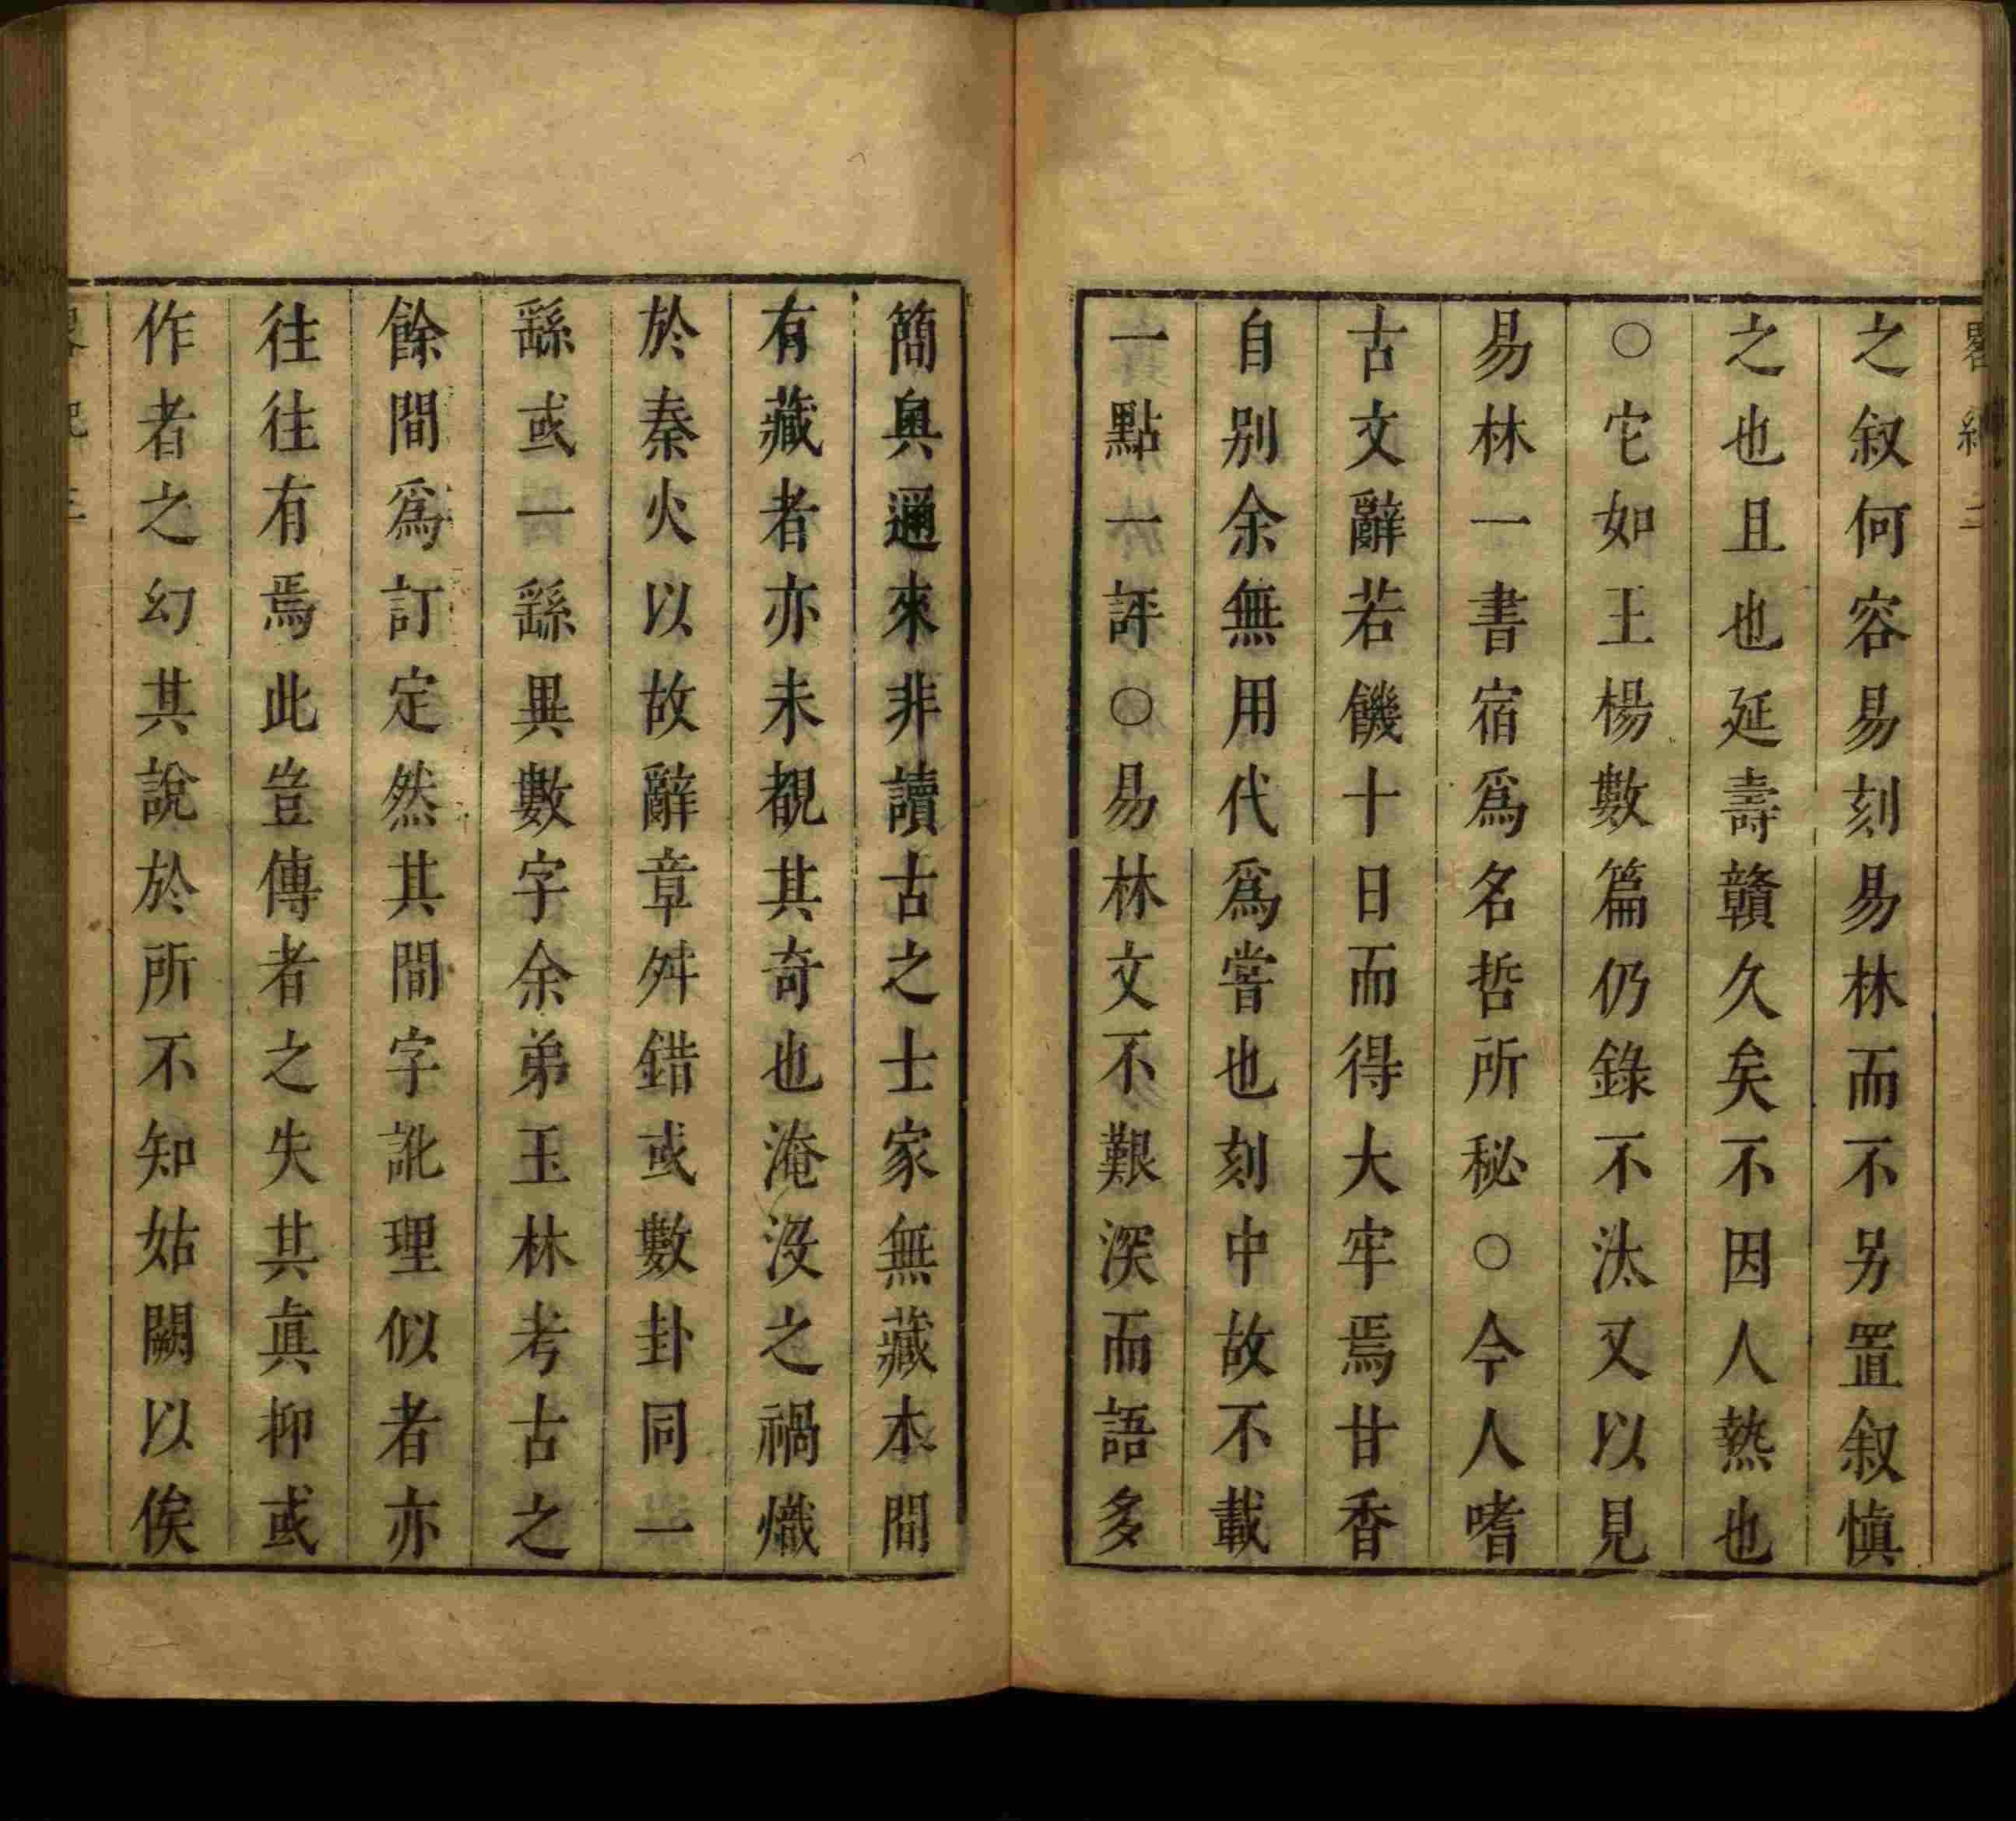 畧紀二
之叙何容易刻易林而不另置叙慎
之也且也延壽贛久矣不因人熱也
○它如王楊數篇仍錄不汰又以見
易林一書宿爲名哲所秘○今人嗜
古文辭若饑十日而得大牢焉甘香
自别余無用代爲嘗也刻中故不載
一點一評○易林文不艱深而語多
簡奥邇來非讀古之士家無藏本間
有藏者亦未覩其奇也淹沒之禍熾
於秦火以故辭章舛錯或數卦同一
繇或一繇異數字余弟玉林考古之
餘間爲訂定然其間字訛理似者亦
往往有焉此豈傳者之失其眞抑或
作者之幻其說於所不知姑闕以俟
畧紀三